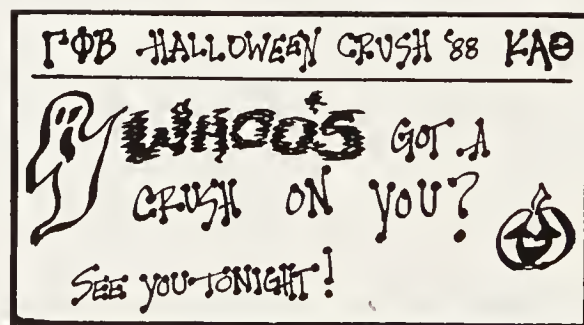 ΓΦΒ HALLOWEEN CRUSH '88 ΚΑΘ
WHOO'S GOT A
CRUSH ON YOU?
SEE YOU TONIGHT!